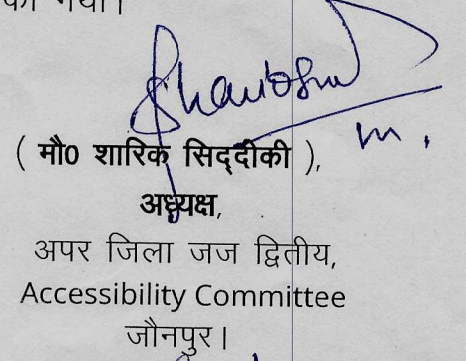 की गयी।
( मौ0 शारिक सिद्दीकी ),
अध्यक्ष,
अपर जिला जज द्वितीय,
Accessibility Committee
जौनपुर।